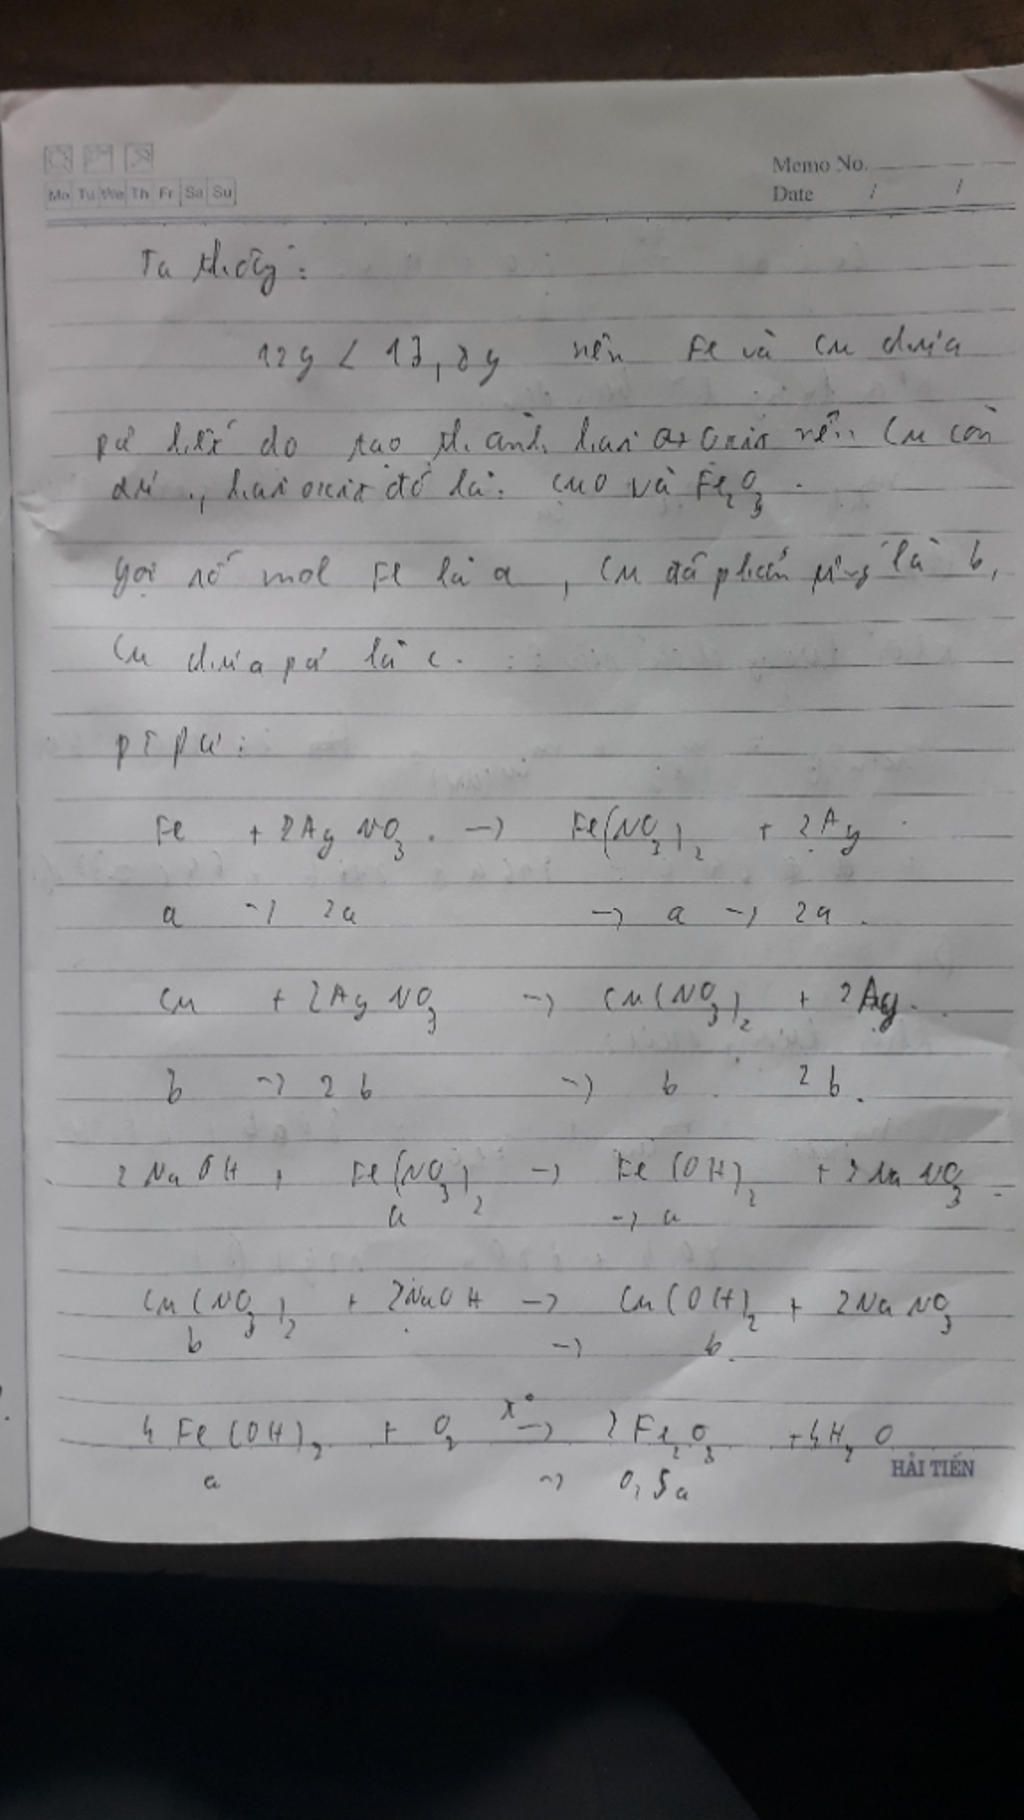 Memo No.
Mo Tu We Th Fr Sa Su
Date / /
Ta thấy:
12g < 13,8g nên Fe và Cu chưa
pứ hết do tạo thành hai oxit nên Cu còn
dư, hai oxit đó là: CuO và Fe₂O₃.
Gọi số mol Fe là a, Cu đã phản ứng là b,
Cu chưa pứ là c.
PTPứ:
Fe + 2AgNO₃ → Fe(NO₃)₂ + 2Ag
a → 2a → a → 2a.
Cu + 2AgNO₃ → Cu(NO₃)₂ + 2Ag.
b → 2b → b 2b.
2NaOH + Fe(NO₃)₂ → Fe(OH)₂ + 2NaNO₃.
a → a
Cu(NO₃)₂ + 2NaOH → Cu(OH)₂ + 2NaNO₃
b → b.
4Fe(OH)₂ + O₂ t° → 2Fe₂O₃ + 4H₂O
HẢI TIẾN
a → 0,5a